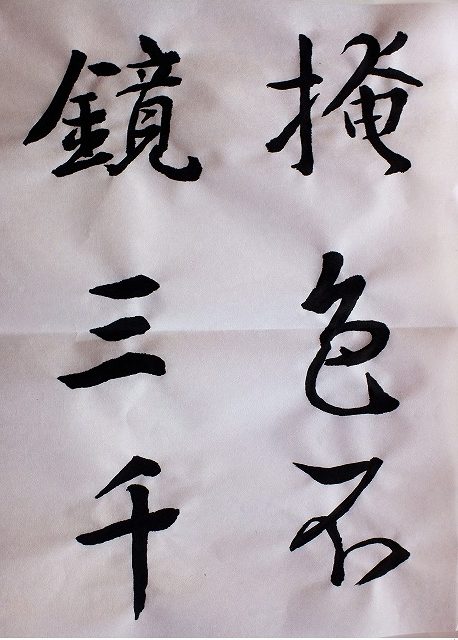 掩色不
鏡三千